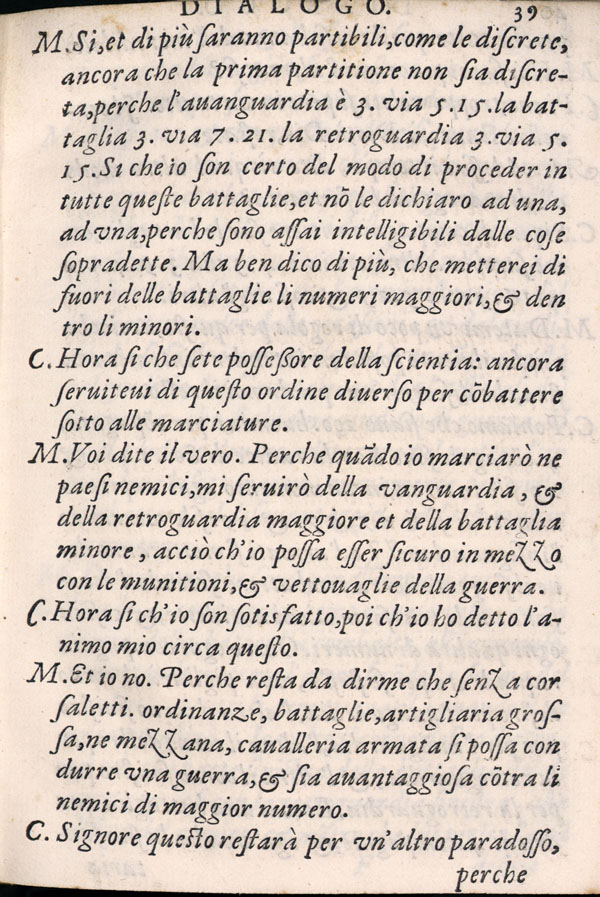 DIALOGO. 39
M. Si, et di più ſaranno partibili, come le diſcrete,
ancora che la prima partitione non ſia diſcre-
ta, perche l'auanguardia è 3. via 5. 15. la bat-
taglia 3. via 7. 21. la retroguardia 3. via 5.
15. Si che io ſon certo del modo di proceder in
tutte queſte battaglie, et nõ le dichiaro ad una,
ad vna, perche ſono aſſai intelligibili dalle coſe
ſopradette. Ma ben dico di più, che metterei di
fuori delle battaglie li numeri maggiori, & den
tro li minori.
C. Hora ſi che ſete poſſeßore della ſcientia: ancora
ſeruiteui di queſto ordine diuerſo per cõbattere
ſotto alle marciature.
M. Voi dite il vero. Perche quãdo io marciarò ne
paeſi nemici, mi ſeruirò della vanguardia, &
della retroguardia maggiore et della battaglia
minore, acciò ch'io poſſa eſſer ſicuro in mezzo
con le munitioni, & vettouaglie della guerra.
C. Hora ſi ch'io ſon ſotisfatto, poi ch'io ho detto l'a-
nimo mio circa queſto.
M. Et io no. Perche reſta da dirme che ſenza cor
ſaletti. ordinanze, battaglie, artigliaria groſ-
ſa, ne mezzana, caualleria armata ſi poſſa con
durre vna guerra, & ſia auantaggioſa cõtra li
nemici di maggior numero.
C. Signore queſto reſtarà per vn'altro paradoſſo,
perche